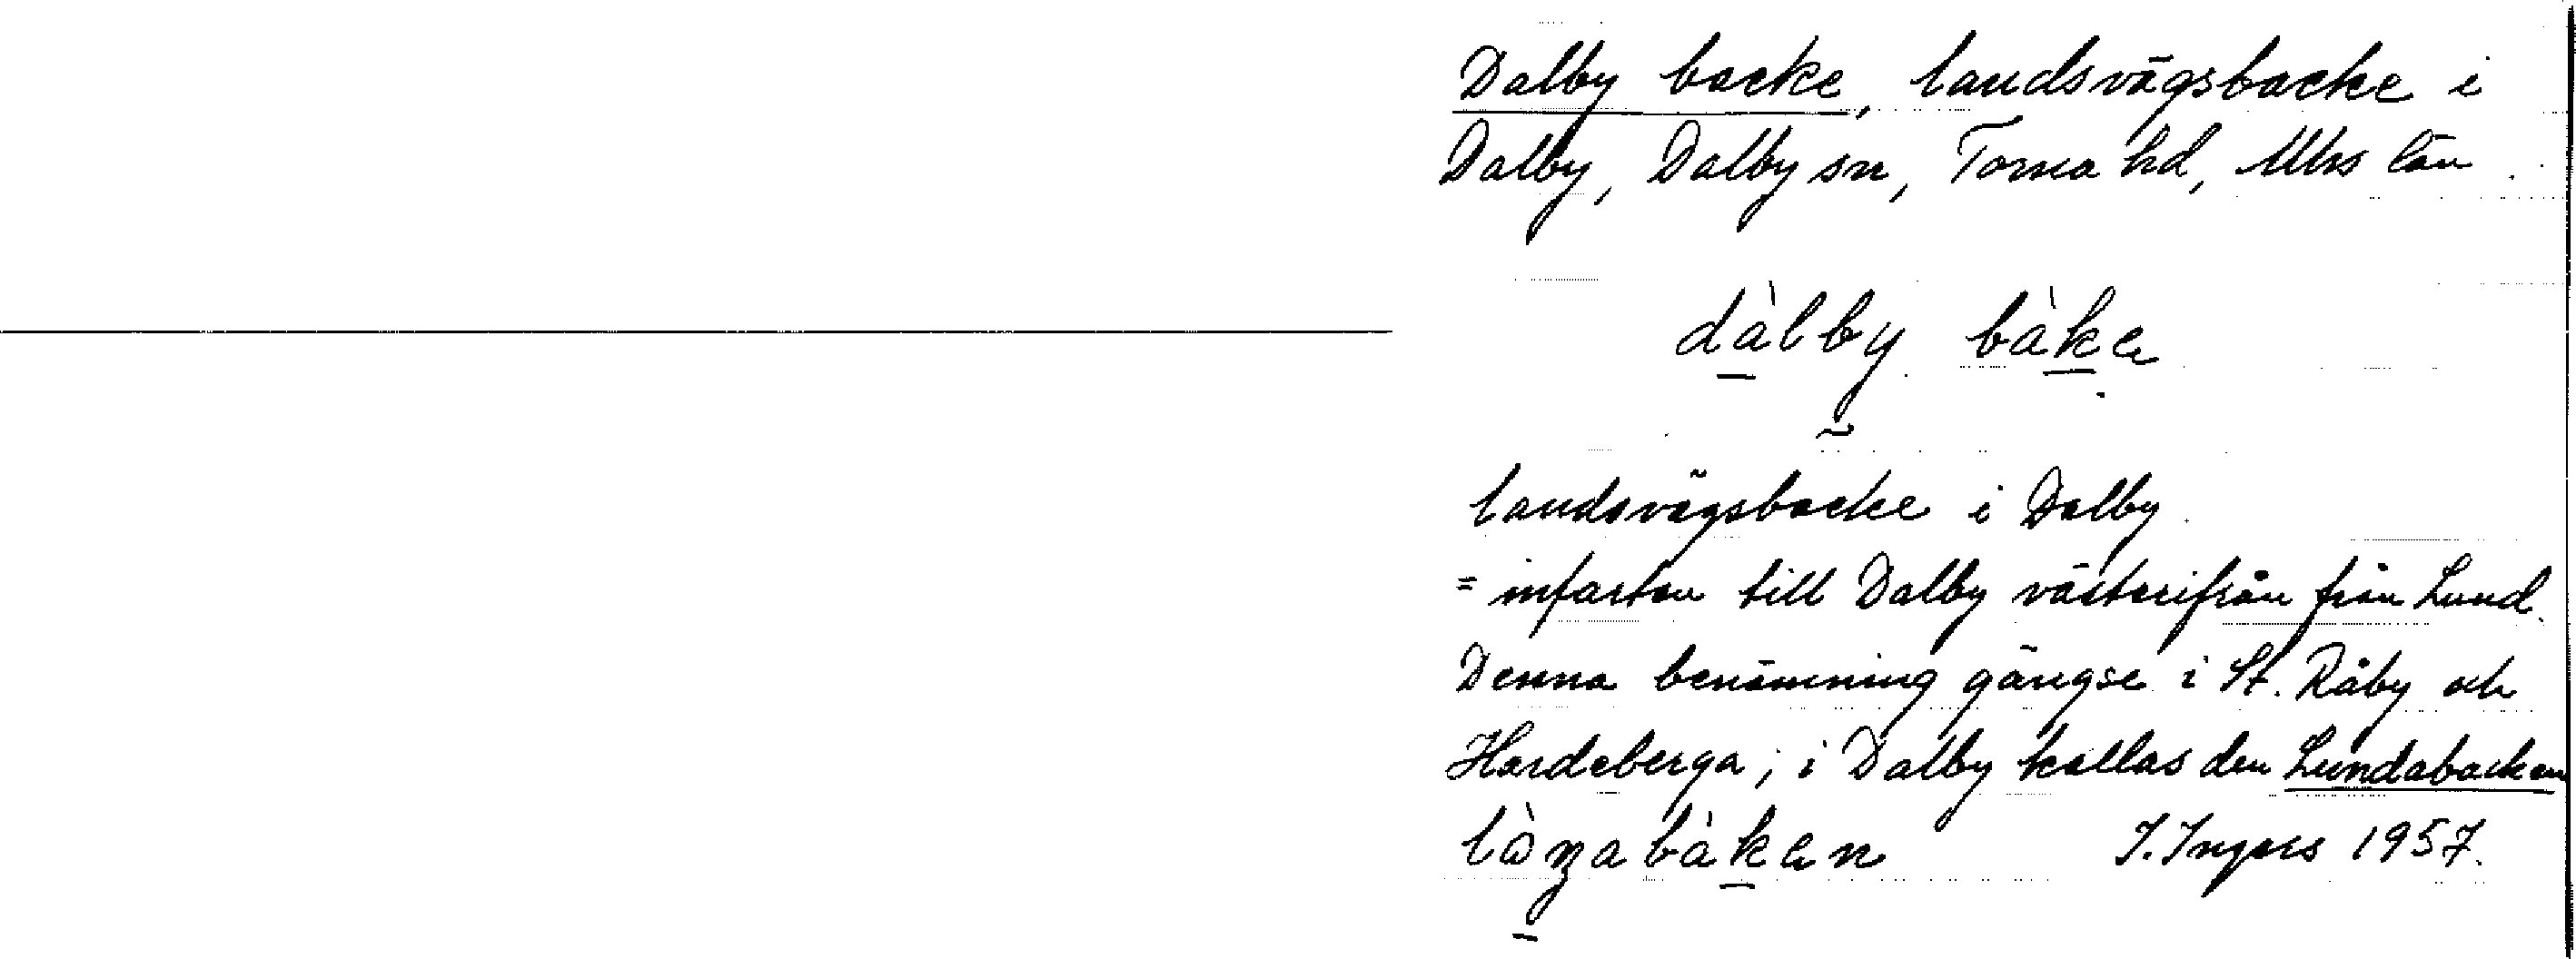 Dalby backe, landsvägsbacke i
Dalby, Dalby sn, Torna hd, Mhs län
dàlby bàkə
landsvägsbacke i Dalby
= infarten till Dalby västerifrån från Lund.
Denna benämning gängse i St. Råby och
Hardeberga; i Dalby kallas den Lundabacken
bàkən I. Ingers 1957.